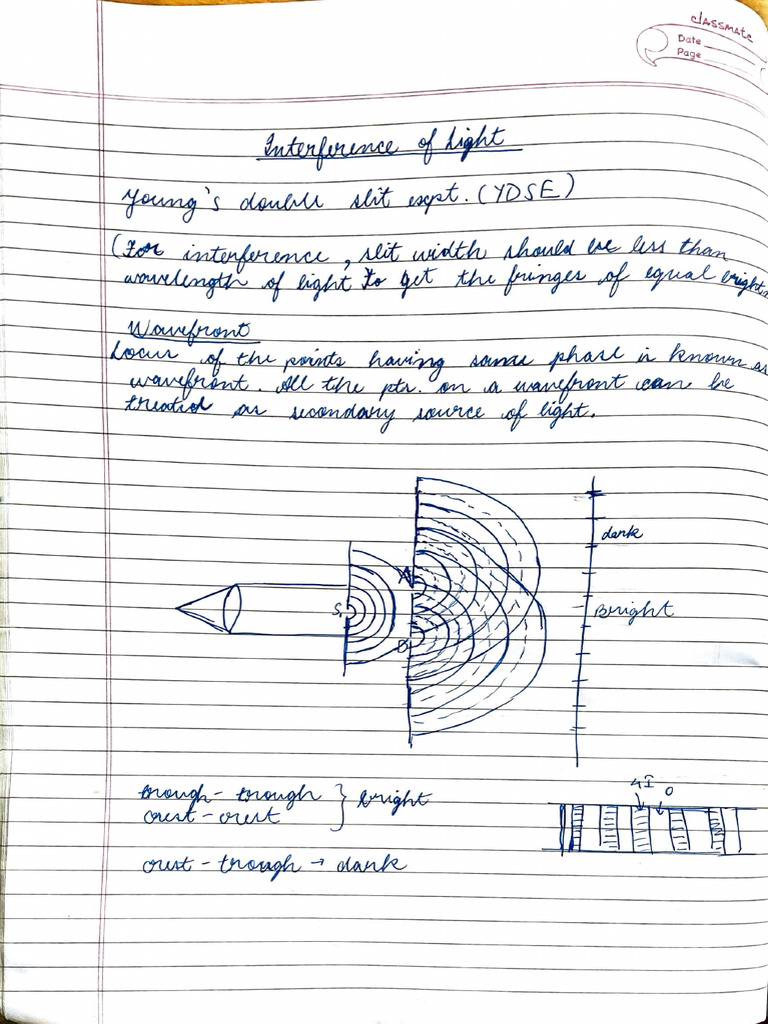 classmate
Date
Page
Interference of Light
Young's double slit expt. (YDSE)
(For interference, slit width should be less than
wavelength of light to get the fringes of equal bright
Wavefront
Locus of the points having same phase is known as
wavefront. All the pts. on a wavefront can be
treated as secondary source of light.
dark
A
S
Bright
B
4I 0
trough - trough } bright
crest - crest
crest - trough → dark